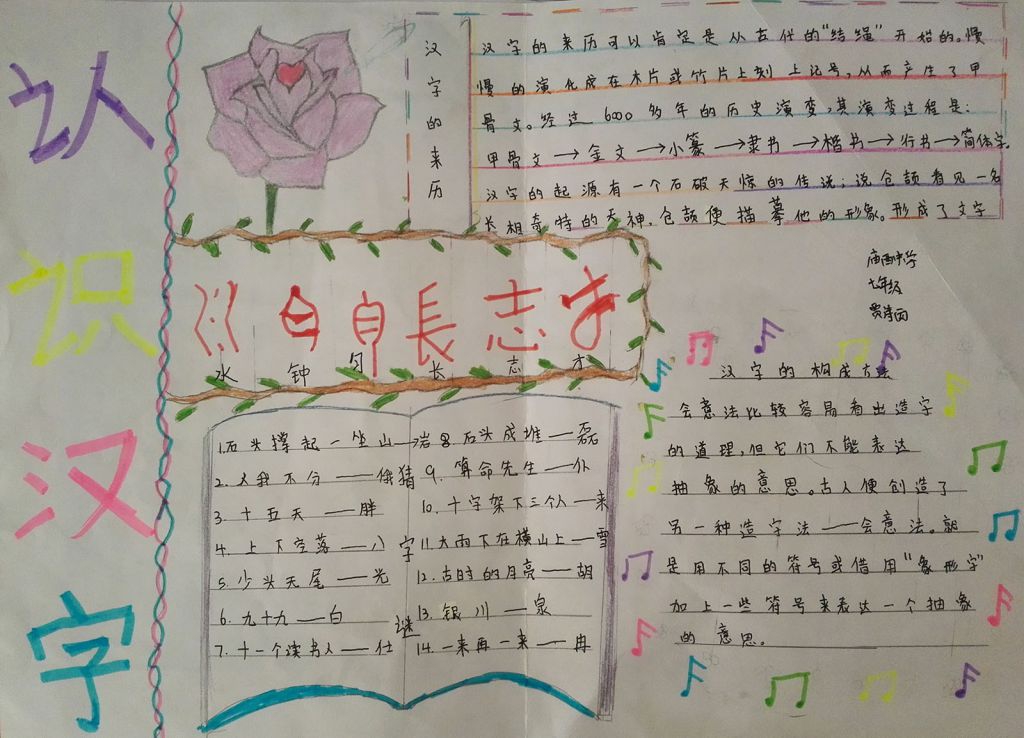 认
识
汉
字
汉
字
的
来
历
汉字的来历可以肯定是从古代的“结绳”开始的。慢
慢的演化成在木片或竹片上刻上记号，从而产生了甲
骨文。经过6000多年的历史演变，其演变过程是：
甲骨文→金文→小篆→隶书→楷书→行书→简体字。
汉字的起源有一个石破天惊的传说；说仓颉看见一名
长相奇特的天神，仓颉便描摹他的形象。形成了文字
庙西中学
七年级
長志
水 钟 长 志 才
字
谜
1.石头撑起一坐山——岩
2.大我不分——俄
3.十五天——胖
4.上下空落——八
5.少头无尾——光
6.九十九——白
7.十一个读书人——仕
8.石头成堆——磊
9.算命先生——仆
10.十字架下三个人——来
11.大雨下在横山上——雪
12.古时的月亮——胡
13.银川——泉
14.一来再一来——冉
汉字的构成方法
会意法比较容易看出造字
的道理，但它们不能表达
抽象的意思。古人便创造了
另一种造字法——会意法。就
是用不同的符号或借用“象形字”
加上一些符号来表达一个抽象
的意思。